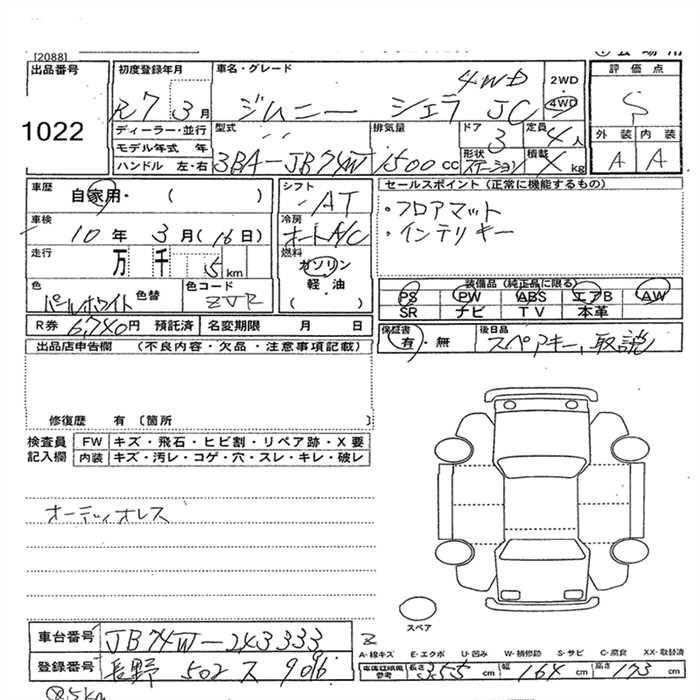 [2088]
出品番号
1022
初度登録年月
R7 3 月
車名・グレード
4WD
ジムニー シエラ JC
2WD
・
4WD
評価点
S
外装 内装
A A
ディーラー・並行
モデル年式 年
ハンドル 左・右
型式
3BA-JB74W
排気量
1500 cc
ドア
3
定員
4 人
形状
ステーション
積載
kg
車歴
自家用・( )
車検
10 年 3 月(16 日)
走行
万 千 5 km
色
パールホワイト
色替
色コード
ZVR
シフト
AT
冷房
オートA/C
燃料
ガソリン
軽・油
( )
セールスポイント(正常に機能するもの)
・フロアマット
・インテリキー
装備品(純正品に限る)
PS PW ABS エアB AW
SR ナビ TV 本革
R券 6,740円 預託済
名変期限 月 日
保証書
有・無
後日品
スペアキー,取説
出品店申告欄 (不良内容・欠品・注意事項記載)
修復歴 有〔箇所 〕
検査員
記入欄
FW キズ・飛石・ヒビ割・リペア跡・X要
内装 キズ・汚レ・コゲ・穴・スレ・キレ・破レ
オーディオレス
スペア
車台番号 JB74W-243333
登録番号 長野 502 ス 9096
A-線キズ E-エクボ U-凹み W-補修跡 S-サビ C-腐食 XX-取替済
長さ 355 cm 幅 164 cm 高さ 173 cm
5km